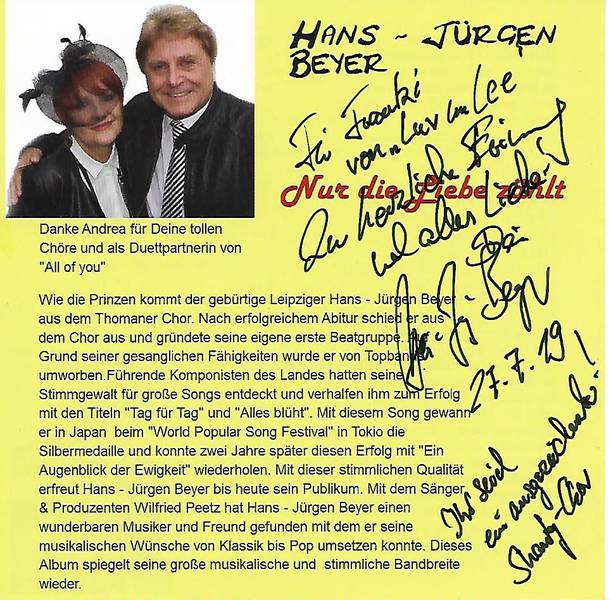 HANS - JÜRGEN
BEYER
Für
von "Luv und Lee"
Zur herzliche
Nur die Liebe zählt
und alles Liebe
Dein
Hans-Jürgen Beyer
27.7.19
Ihr seid
ein ausgezeichneter
Shanty-Chor!
Danke Andrea für Deine tollen
Chöre und als Duettpartnerin von
"All of you"
Wie die Prinzen kommt der gebürtige Leipziger Hans - Jürgen Beyer
aus dem Thomaner Chor. Nach erfolgreichem Abitur schied er aus
dem Chor aus und gründete seine eigene erste Beatgruppe. Auf
Grund seiner gesanglichen Fähigkeiten wurde er von Topbands
umworben.Führende Komponisten des Landes hatten seine
Stimmgewalt für große Songs entdeckt und verhalfen ihm zum Erfolg
mit den Titeln "Tag für Tag" und "Alles blüht". Mit diesem Song gewann
er in Japan beim "World Popular Song Festival" in Tokio die
Silbermedaille und konnte zwei Jahre später diesen Erfolg mit "Ein
Augenblick der Ewigkeit" wiederholen. Mit dieser stimmlichen Qualität
erfreut Hans - Jürgen Beyer bis heute sein Publikum. Mit dem Sänger
& Produzenten Wilfried Peetz hat Hans - Jürgen Beyer einen
wunderbaren Musiker und Freund gefunden mit dem er seine
musikalischen Wünsche von Klassik bis Pop umsetzen konnte. Dieses
Album spiegelt seine große musikalische und stimmliche Bandbreite
wieder.